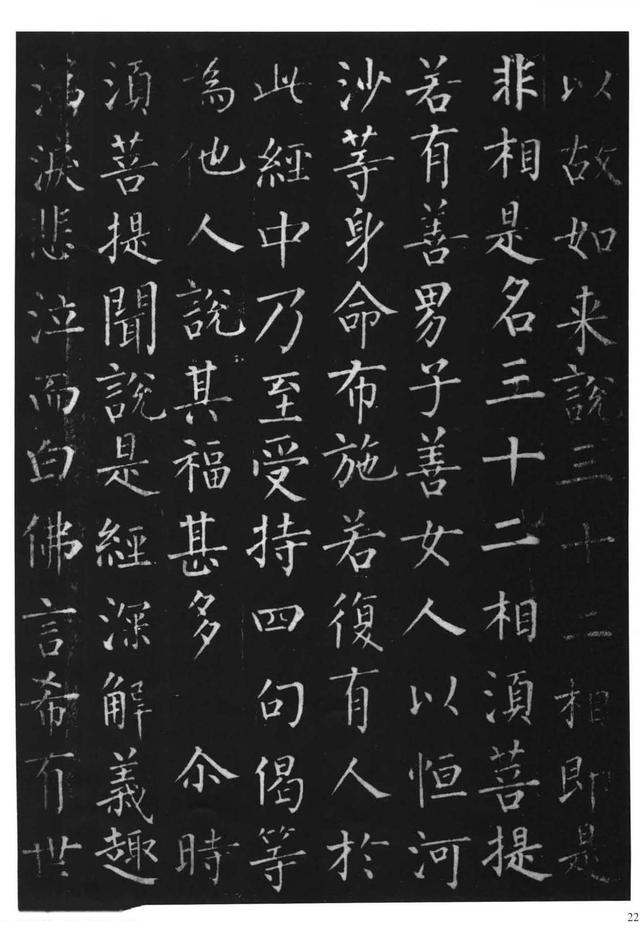 以故如来說三十二相即是
非相是名三十二相須菩提
若有善男子善女人以恒河
沙等身命布施若復有人於
此經中乃至受持四句偈等
為他人說其福甚多 尒時
須菩提聞說是經深解義趣
涕淚悲泣而白佛言希有世
22